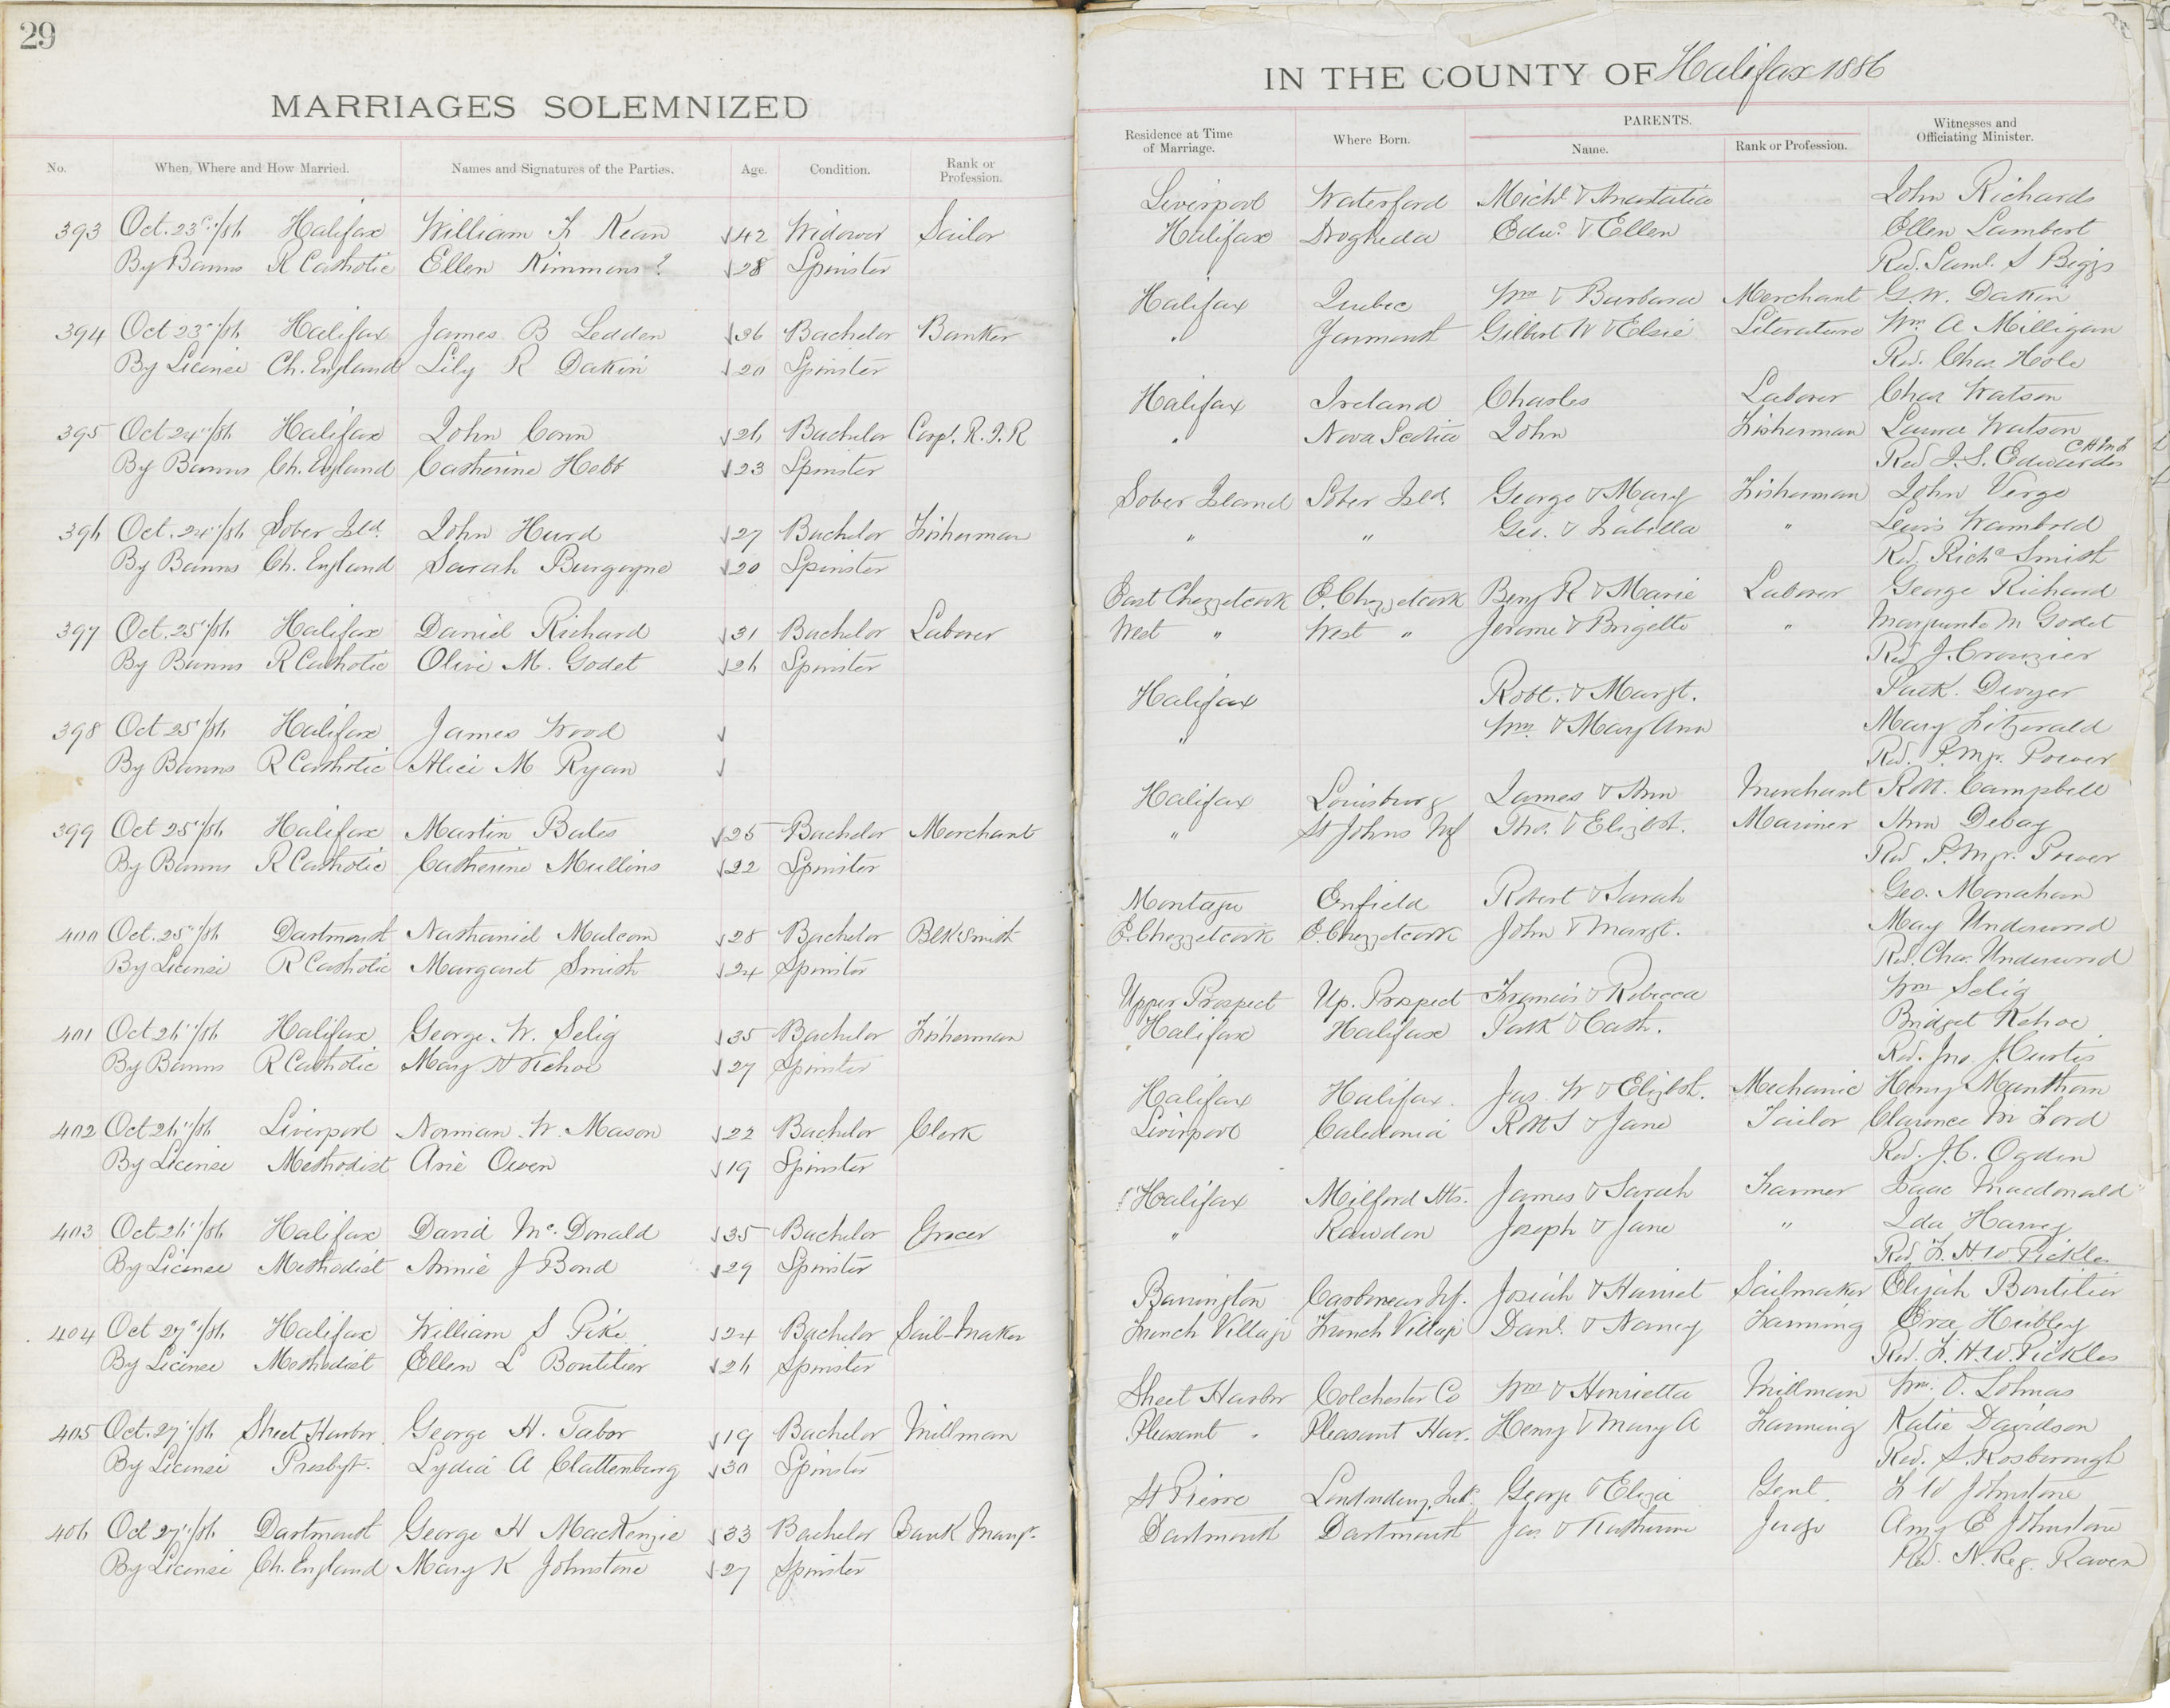 29
MARRIAGES SOLEMNIZED
No. When, Where and How Married. Names and Signatures of the Parties. Age. Condition. Rank or Profession.
393 Oct. 23d/86 Halifax William F Kean 42 Widower Sailor
By Banns R Catholic Ellen Kimmons? 28 Spinster
394 Oct 23d/86 Halifax James B Ledden 36 Bachelor Banker
By License Ch. England Lily R Dakin 20 Spinster
395 Oct 24"/86 Halifax John Conn 26 Bachelor Corpl. R.I.R
By Banns Ch. England Catherine Hebb 23 Spinster
396 Oct. 24"/86 Sober Isd. John Hurd 27 Bachelor Fisherman
By Banns Ch. England Sarah Burgoyne 20 Spinster
397 Oct. 25"/86 Halifax Daniel Richard 31 Bachelor Laborer
By Banns R Catholic Olive M. Godet 26 Spinster
398 Oct 25"/86 Halifax James Wood
By Banns R Catholic Alice M Ryan
399 Oct 25"/86 Halifax Martin Bates 25 Bachelor Merchant
By Banns R Catholic Catherine Mullins 22 Spinster
400 Oct. 25"/86 Dartmouth Nathaniel Malcom 28 Bachelor Blksmith
By License R Catholic Margaret Smith 24 Spinster
401 Oct 26"/86 Halifax George. W. Selig 35 Bachelor Fisherman
By Banns R Catholic Mary H Kehoe 27 Spinster
402 Oct 26"/86 Liverpool Norman. W. Mason 22 Bachelor Clerk
By License Methodist Arie Owen 19 Spinster
403 Oct 26"/86 Halifax David Mc.Donald 35 Bachelor Grocer
By License Methodist Annie J Bond 29 Spinster
404 Oct 27"/86 Halifax William S Pike 24 Bachelor Sail-Maker
By License Methodist Ellen L Boutilier 26 Spinster
405 Oct. 27"/86 Sheet Harbor George H. Tabor 19 Bachelor Millman
By License Presbyt. Lydia A Clattenburg 30 Spinster
406 Oct 27"/86 Dartmouth George H MacKenzie 33 Bachelor Bank Mangr.
By License Ch. England Mary K Johnstone 27 Spinster
IN THE COUNTY OF Halifax 1886
Residence at Time of Marriage. Where Born. PARENTS. Name. Rank or Profession. Witnesses and Officiating Minister.
Liverpool Waterford Michl & Anastatia John Richards
Halifax Drogheda Edwd & Ellen Ellen Lambert
Rev. Saml. S Biggs
Halifax Quebec Wm & Barbara Merchant G.W. Dakin
" Yarmouth Gilbert W & Elsie Literature Wm A Milligan
Rev. Chas Hole
Halifax Ireland Charles Laborer Chas Watson
" Nova Scotia John Fisherman Laura Watson
Rev J.S. Edwardes
Sober Island Sober Isld. George & Mary Fisherman John Verge
" " Geo. & Isabella " Lewis Wambold
Rev. Richd Smith
East Chezzetcook E. Chezzetcook Benj R & Marie Laborer George Richard
West " West " Jerome & Brigette " M Godet
Rev J.
Halifax Robt. & Margt. Patk. Dwyer
" Wm & Mary Ann Mary Fitzerald
Rev. P. Mgr. Power
Halifax Louisburg James & Ann Merchant Robt. Campbell
" St Johns Nf Thos. & Elizbth. Mariner Ann Debay
Rev P. Mgr. Power
Montagu Enfield Robert & Sarah Geo. Monahan
E. Chezzetcook E. Chezzetcook John & Margt. May Underwood
Rev. Chas. Underwood
Upper Prospect Up. Prospect Francis & Rebecca Wm Selig
Halifax Halifax Patk & Cath. Bridget Kehoe
Rev. Jno. J. Curtis
Halifax Halifax. Jas. W & Elizbth. Mechanic Henry
Liverpool Caledonia Robt S & Jane Tailor Clarence M Ford
Rev. J.C. Ogden
Halifax Milford Hts. James & Sarah Farmer Isaac Macdonald
" Rawdon Joseph & Jane " Ida Harvey
Rev F. H. W. Pickles
Barrington Carbonear Nf. Josiah & Harriet Sailmaker Elijah Boutilier
French Village French Village Danl. & Nancy Farming Eva Hubley
Rev. F. H. W. Pickles
Sheet Harbor Colchester Co Wm & Henrietta Millman Wm. O. Lohnas
Pleasant " Pleasant Har. Henry & Mary A Farming Katie Davidson
Rev. S. Rosborough
St Pierre Londonderry, Irld. George & Eliza Gent. F W Johnstone
Dartmouth Dartmouth Jas. & Katherine Judge Amy E Johnstone
Rev. N. Reg. Raven